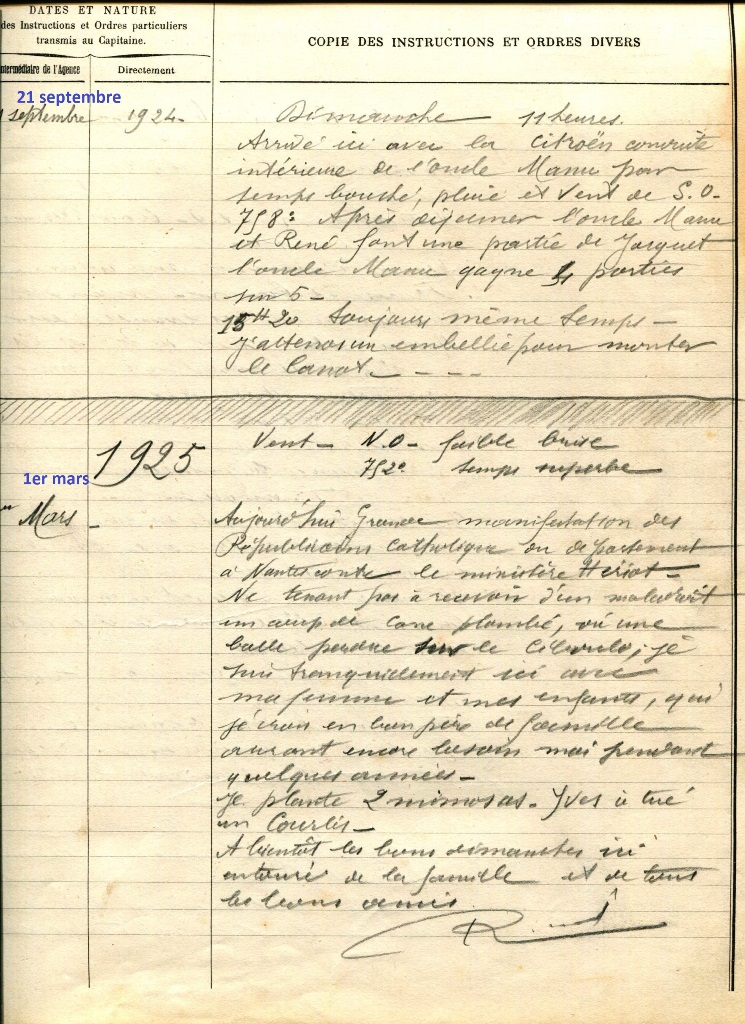 DATES ET NATURE
des Instructions et Ordres particuliers
transmis au Capitaine.
COPIE DES INSTRUCTIONS ET ORDRES DIVERS
ntermédiaire de l'Agence
Directement
21 septembre
septembre 1924 - Dimanche 11 heures.
Arrivé ici avec la Citroën conduite
intérieure de l'oncle Manu par
temps bouché, pluie et Vent de S.O -
758: Après déjeuner l'oncle Manu
et René font une partie de Jacquet
l'oncle Manu gagne 4 parties
sur 5 -
15H20 toujours même temps -
J'attends un embellie pour monter
le Canot. - - - -
1925 Vent - N.O - faible brise
752° temps superbe
1er mars
Mars -
Aujourd'hui Grande manifestation des
Républicains Catholique du département
à Nantes contre le ministère Heriot -
Ne tenant pas à recevoir d'un maladroit
un coup de cane plombé, où une
balle perdue sur le Ciboulo, je
suis tranquillement ici avec
ma femme et mes enfants, qui
je crois en bon père de famille
auront encore besoin moi pendant
quelques années -
Je plante 2 mimosas - Yves à tué
un Courlis -
A bientôt les bons dimanches ici
entouré de la famille et de tous
les bons amis